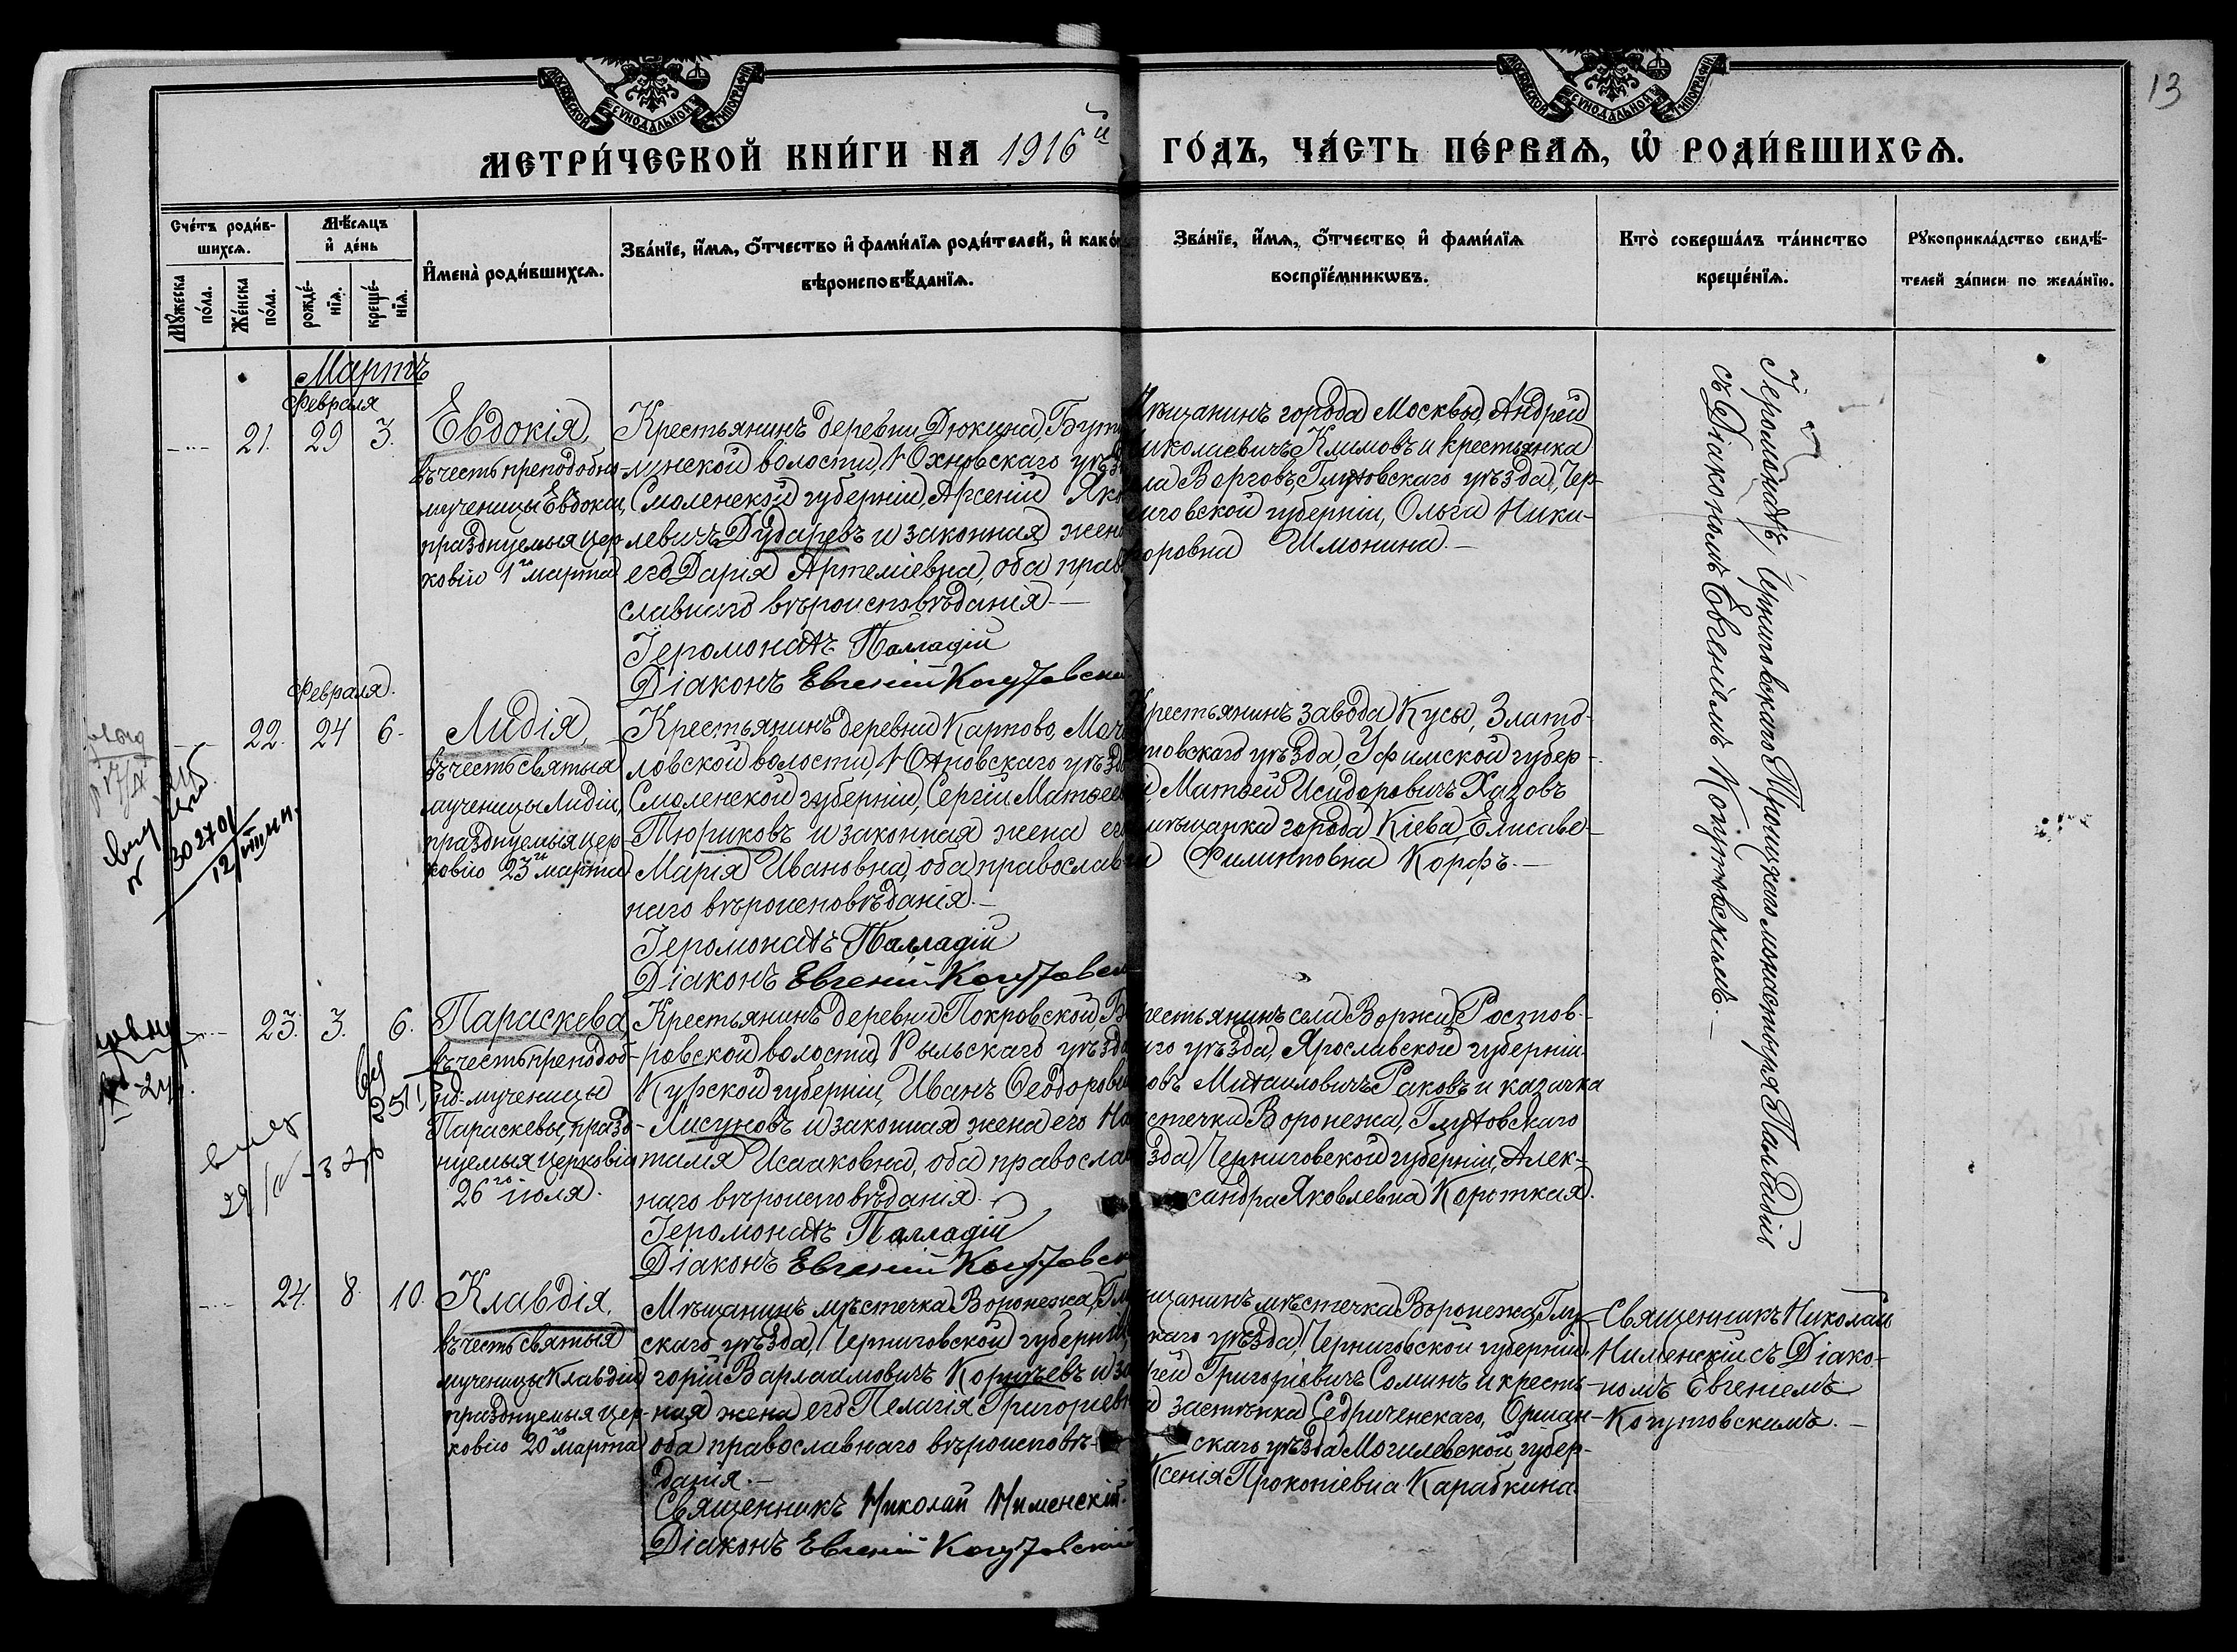 13
МОСКОВСКОЙ СѴНОДАЛЬНОЙ ТИПОГРАФІИ
МОСКОВСКОЙ СѴНОДАЛЬНОЙ ТИПОГРАФІИ
МЕТРИ́ЧЕСКОЙ КНИ́ГИ НА 1916й ГО́ДЪ, ЧА́СТЬ ПЕ́РВАѦ, Ѡ҆ РОДИ́ВШИХСѦ.
Сче́тъ роди́в-
шихсѧ.
Мꙋ́жеска
по́ла.
Же́нска
по́ла.
Мѣ́сѧцъ
и҆ де́нь
рожде́-
нїѧ.
креще́-
нїѧ.
И҆мена̀ роди́вшихсѧ.
Зва́нїе, и҆́мѧ, ѻ҆́тчество и҆ фами́лїѧ роди́телей, и҆ како́гѡ
вѣроисповѣ́данїѧ.
Зва́нїе, и҆́мѧ, ѻ҆́тчество и҆ фами́лїѧ
воспрїе́мникѡвъ.
Кто̀ соверша́лъ та́инство
креще́нїѧ.
Рꙋкоприкла́дство свидѣ́-
телей за́писи по жела́нїю.
Мартъ
Февраля
21. 29 3.
Евдокія,
въ честь преподобно-
мученицы Евдокіи,
празднуемыя цер-
ковію 1го марта
Крестьянинъ деревни Дюкина, Бут
линской волости, Юхновскаго уѣз
Смоленской губерніи, Арсеній Як
левичъ Дударевъ и законная жен
его Дарія Артеміевна, оба прав
славнаго вѣроисповѣданія.—
Іеромонахъ Палладій
Діаконъ Евгеній
Мѣщанинъ города Москвы, Андрей
Николаевичъ Климовъ и крестьянка
ла Воргова, Глуховскаго уѣзда, Чер-
ниговской губерніи, Ольга Ники-
форовна Шмонина.—
Іеромонахъ Черниговскаго Троицкаго монастыря Палладій
съ Діакономъ Евгеніемъ.—
Февраля.
22. 24 6.
Лидія,
въ честь святыя
мученицы Лидіи,
празднуемыя цер-
ковію 23го марта
Крестьянинъ деревни Карпово, Моч
ловской волости, Юхновскаго уѣзд
Смоленской губерніи, Сергій Матвеев
Тюриковъ и законная жена его
Марія Ивановна, оба православ-
наго вѣроисповѣданія.—
Іеромонахъ Палладій
Діаконъ Евгеній
Крестьянинъ завода Кусы, Злато-
устовскаго уѣзда, Уфимской губер-
Матвей Исидоровичъ Хазовъ
мѣщанка города Кіева, Елисаве-
Филипповна Корфъ.—
302701
12
23. 3. 6.
Параскева
въ честь преподоб-
но-мученицы
Параскевы, празд-
нуемыя церковію
26го іюля.
Крестьянинъ деревни Покровской, Б
ровской волости, Рыльскаго уѣзда
Курской губерніи, Иванъ Ѳеодоров
Лисуновъ и законная жена его На
талія Исааковна, оба правосла
наго вѣроисповѣданія.—
Іеромонахъ Палладій
Діаконъ Евгеній
Крестьянинъ села Воржи, Ростов-
скаго уѣзда, Ярославской губерніи
Михаиловичъ Раковъ и казачка
мѣстечка Воронежа, Глуховскаго
уѣзда, Черниговской губерніи, Алек-
сандра Яковлевна Короткая.
24. 8. 10.
Клавдія,
въ честь святыя
мученицы Клавдіи
празднуемыя цер-
ковію 20го марта
Мѣщанинъ мѣстечка Воронежа, Глу
скаго уѣзда, Черниговской губерніи,
горій Варлаамовичъ и за
ная жена его Пелагія Григоріев
оба православнаго вѣроисповѣ-
данія.—
Священникъ Николай Нименскій.
Діаконъ Евгеній
мѣщанинъ мѣстечка Воронежа, Глу-
скаго уѣзда, Черниговской губерніи,
Григоріевичъ Соминъ и кресть-
застѣнка Седриченскаго, Оршан-
скаго уѣзда Могилевской губер-
Ксенія Прокопіевна Карабкина.
Священникъ Николай
Нименскій съ Діако-
номъ Евгеніемъ